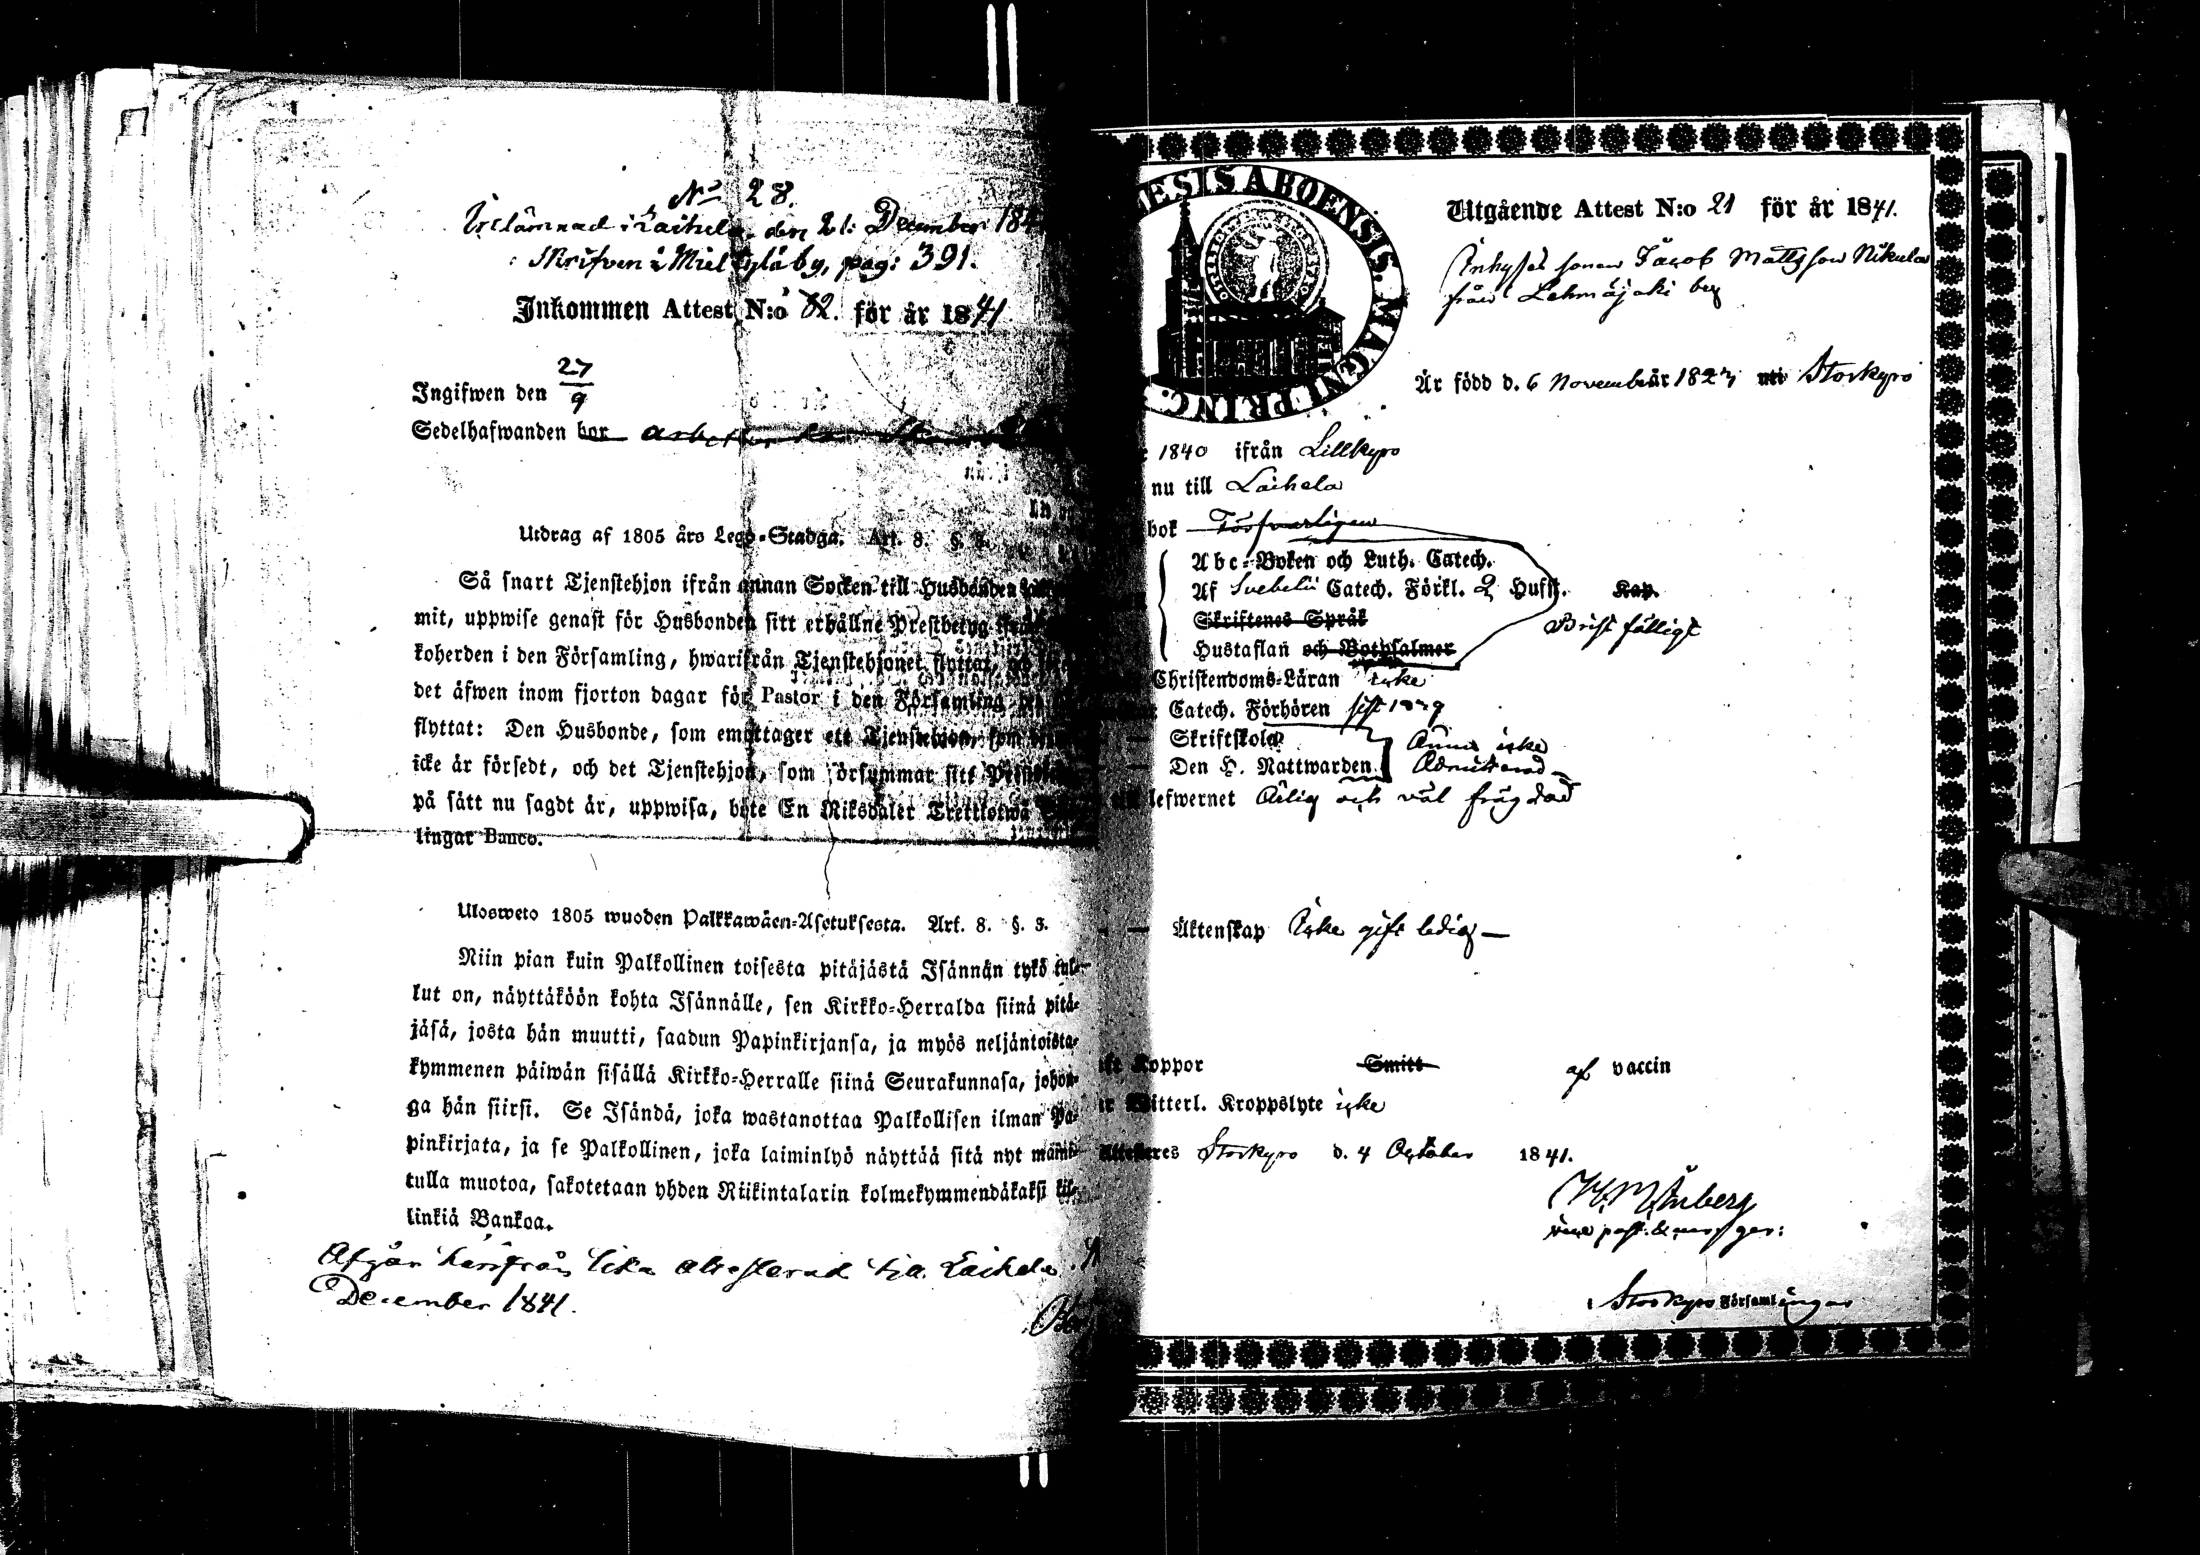 No 28.
Inlämnad i Laihela den 21 December 184
Skrifven i Mieltylä by, pag: 391.
Inkommen Attest N:o 82. för år 1841
Ingifwen den 27/9
Sedelhafwanden bor
Utdrag af 1805 års Lego-Stadga. Art. 8. §. 3.
Så snart Tjenstehjon ifrån annan Socken till Husbonden
mit, uppwise genast för Husbonden sitt erhållne Prestbetyg
koherden i den Församling, hwarifrån Tjenstehjonet flyttat,
det äfwen inom fjorton dagar för Pastor i den Församling
flyttat: Den Husbonde, som emottager ett Tjenstehjon, som
icke är försedt, och det Tjenstehjon, som försummar sitt
på sätt nu sagdt är, uppwisa, böte En Riksdaler Trettiotwå
lingar Banco.
Ulosweto 1805 wuoden Palkkawäen-Asetuksesta. Art. 8. §. 3.
Niin pian kuin Palkollinen toisesta pitäjästä Isännän tykö tul-
lut on, näyttäköön kohta Isännälle, sen Kirkko-Herralda siinä pitä-
jäsä, josta hän muutti, saadun Papinkirjansa, ja myös neljäntoista-
kymmenen päiwän sisällä Kirkko-Herralle siinä Seurakunnasa, johon-
ga hän siirsi. Se Isändä, joka wastanottaa Palkollisen ilman Pa-
pinkirjata, ja se Palkollinen, joka laiminlyö näyttää sitä nyt mainit-
tulla muotoa, sakotetaan yhden Riikintalarin kolmekymmendäkaksi kil-
linkiä Bankoa.
Afgår härifrån lika attesterad till Laihela
December 1841.
ESIS ABOENSIS. MAGNI PRINC.
Utgående Attest N:o 21 för år 1841.
Inhyses sonen Jacob Mattsson Nikula
från Lehmäjoki by
Är född d. 6 November år 1823 uti Storkyro
1840 ifrån Lillkyro
nu till Laihela
bok Försvarligen
Abc-Boken och Luth. Catech.
Af Svebelii Catech. Förkl. 2 Hufst. Kap.
Skriftenes Språk
Bristfälligt
Hustaflan och Botpsalmer
Christendoms-Läran icke
Catech. Förhören sist 1839
Skriftskola
Ännu icke
Den H. Nattwarden
Admitterad
lefwernet Ärlig och väl frägdad
Äktenskap Icke gift ledig
Koppor Smitt af vaccin
Witterl. Kroppslyte icke
Attesteres Storkyro d. 4 October 1841.
vice past.
Storkyro Församlingar